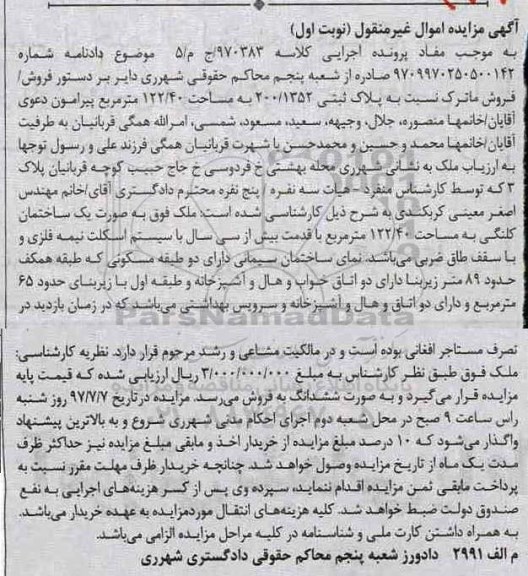 آگهی مزایده اموال غیرمنقول (نوبت اول)
به موجب مفاد پرونده اجرایی کلاسه ۹۷۰۳۸۳/ج م/۵ موضوع دادنامه شماره
۹۷۰۹۹۷۰۲۵۰۵۰۰۱۴۲ صادره از شعبه پنجم محاکم حقوقی شهرری دایر بر دستور فروش/
فروش ماترک نسبت به پلاک ثبتی ۲۰۰/۱۳۵۲ به مساحت ۱۲۲/۴۰ مترمربع پیرامون دعوی
آقایان/خانمها منصوره، جلال، وجیهه، سعید، مسعود، شمسی، امرالله همگی قربانیان به طرفیت
آقایان/خانمها محمد و حسین و محمدحسن با شهرت قربانیان همگی فرزند علی و رسول توجها
به ارزیاب ملک به نشانی شهرری محله بهشتی خ فردوسی خ حاج حبیب کوچه قربانیان پلاک
۳ که توسط کارشناس منفرد - هیات سه نفره / پنج نفره محترم دادگستری آقای/خانم مهندس
اصغر معینی کربکندی به شرح ذیل کارشناسی شده است: ملک فوق به صورت یک ساختمان
کلنگی به مساحت ۱۲۲/۴۰ مترمربع با قدمت بیش از سی سال با سیستم اسکلت نیمه فلزی و
با سقف طاق ضربی می‌باشد. نمای ساختمان سیمانی دارای دو طبقه مسکونی که طبقه همکف
حدود ۸۹ متر زیربنا دارای دو اتاق خواب و هال و آشپزخانه و طبقه اول با زیربنای حدود ۶۵
مترمربع و دارای دو اتاق و هال و آشپزخانه و سرویس بهداشتی می‌باشد که در زمان بازدید در
تصرف مستاجر افغانی بوده است و در مالکیت مشاعی و رشد مرحوم قرار دارد. نظریه کارشناسی:
ملک فوق طبق نظر کارشناس به مبلغ ۳/۰۰۰/۰۰۰/۰۰۰ ریال ارزیابی شده که قیمت پایه
مزایده قرار می‌گیرد و به صورت ششدانگ به فروش می‌رسد. مزایده در تاریخ ۹۷/۷/۷ روز شنبه
راس ساعت ۹ صبح در محل شعبه دوم اجرای احکام مدنی شهرری شروع و به بالاترین پیشنهاد
واگذار می‌شود که ۱۰ درصد مبلغ مزایده از خریدار اخذ و مابقی مبلغ مزایده نیز حداکثر ظرف
مدت یک ماه از تاریخ مزایده وصول خواهد شد. چنانچه خریدار ظرف مهلت مقرر نسبت به
پرداخت مابقی ثمن مزایده اقدام ننماید، سپرده وی پس از کسر هزینه‌های اجرایی به نفع
صندوق دولت ضبط خواهد شد. کلیه هزینه‌های انتقال مورد مزایده به عهده خریدار می‌باشد.
به همراه داشتن کارت ملی و شناسنامه در کلیه مراحل مزایده الزامی می‌باشد.
م الف ۲۹۹۱ دادورز شعبه پنجم محاکم حقوقی دادگستری شهرری
ParsNamadData